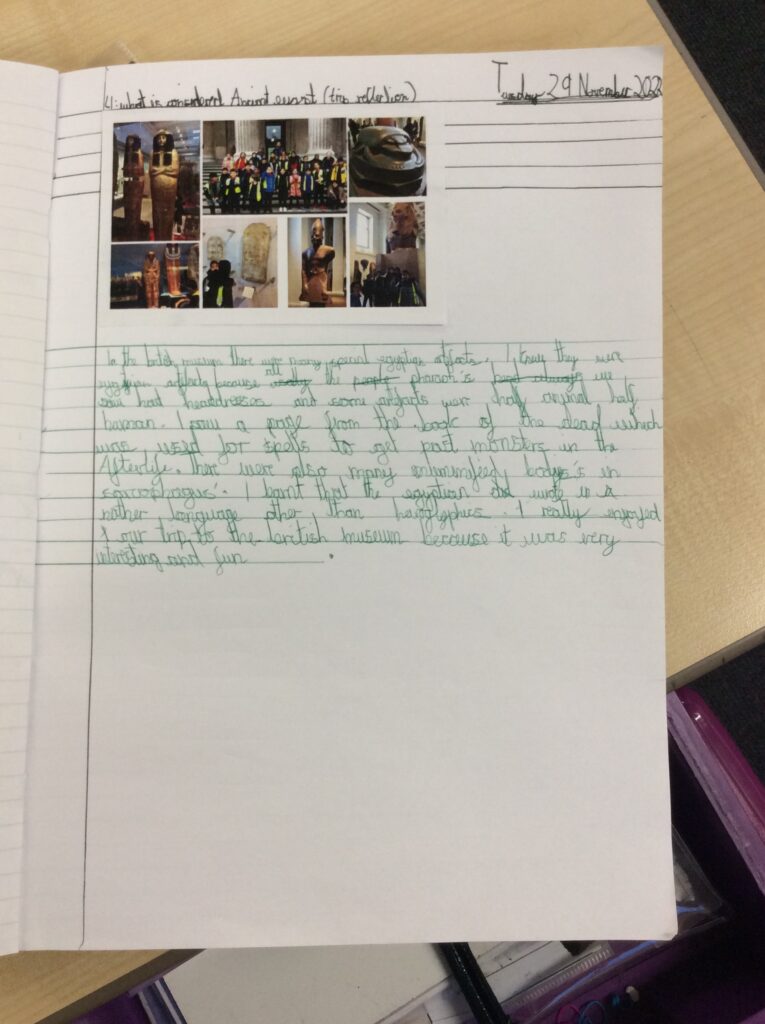 LI: what is considered Ancient (trip reflection)
Tuesday 29 November 2022
In the british museum there were many special egyptian artifacts. I knew they were
egyptian artifacts because all really the people pharoah's had always we
saw had headdresses and some artefacts were half animal half
human. I saw a page from the book of the dead which
was used for spells to get past monsters in the
Afterlife. There were also many mummified bodys's in
sarcophagus'. I learnt that the egyptian did wrote in a
nother language other than
I really enjoyed
our trip to the british museum because it was very
and fun